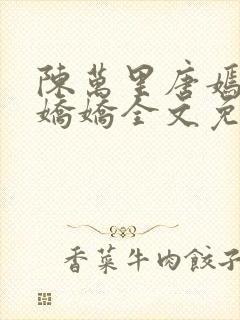 陳萬里唐嫣
嬌嬌全文免
香菜牛肉餃子